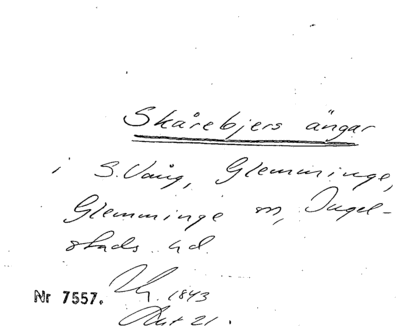 Skårebjers ängar
i S. Vång, Glemminge,
Glemminge sn, Ingel-
stads hd.
Nr 7557. 1843
21.